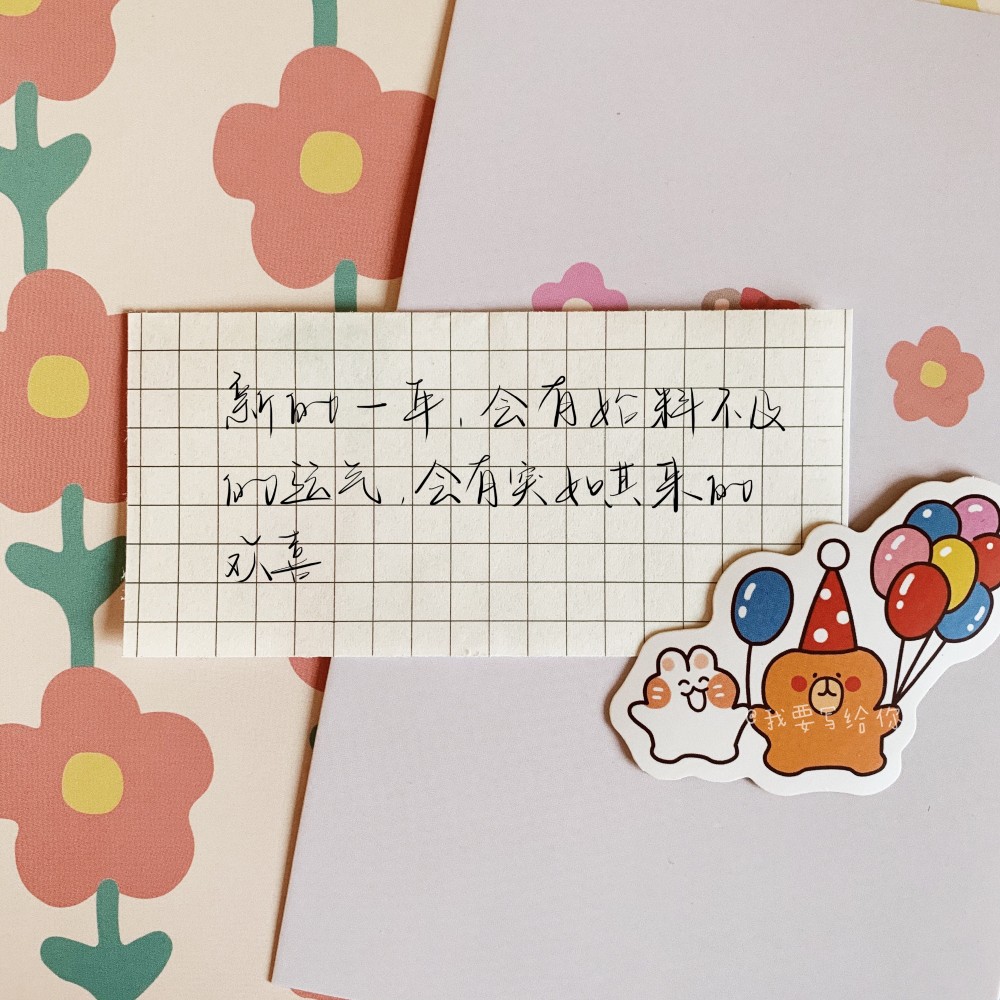 新的一年，会有始料不及
的运气，会有突如其来的
欢喜
@我要写给你